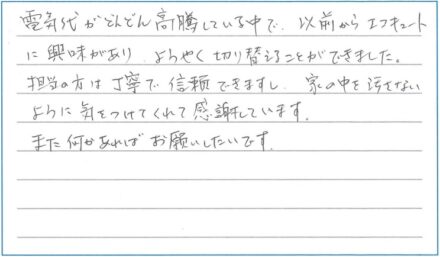 電気代がどんどん高騰している中で、以前からエコキュート
に興味があり、ようやく切り替えることができました。
担当の方は丁寧で信頼できますし、家の中を汚さない
ように気をつけてくれて感謝しています。
また何かあればお願いしたいです。